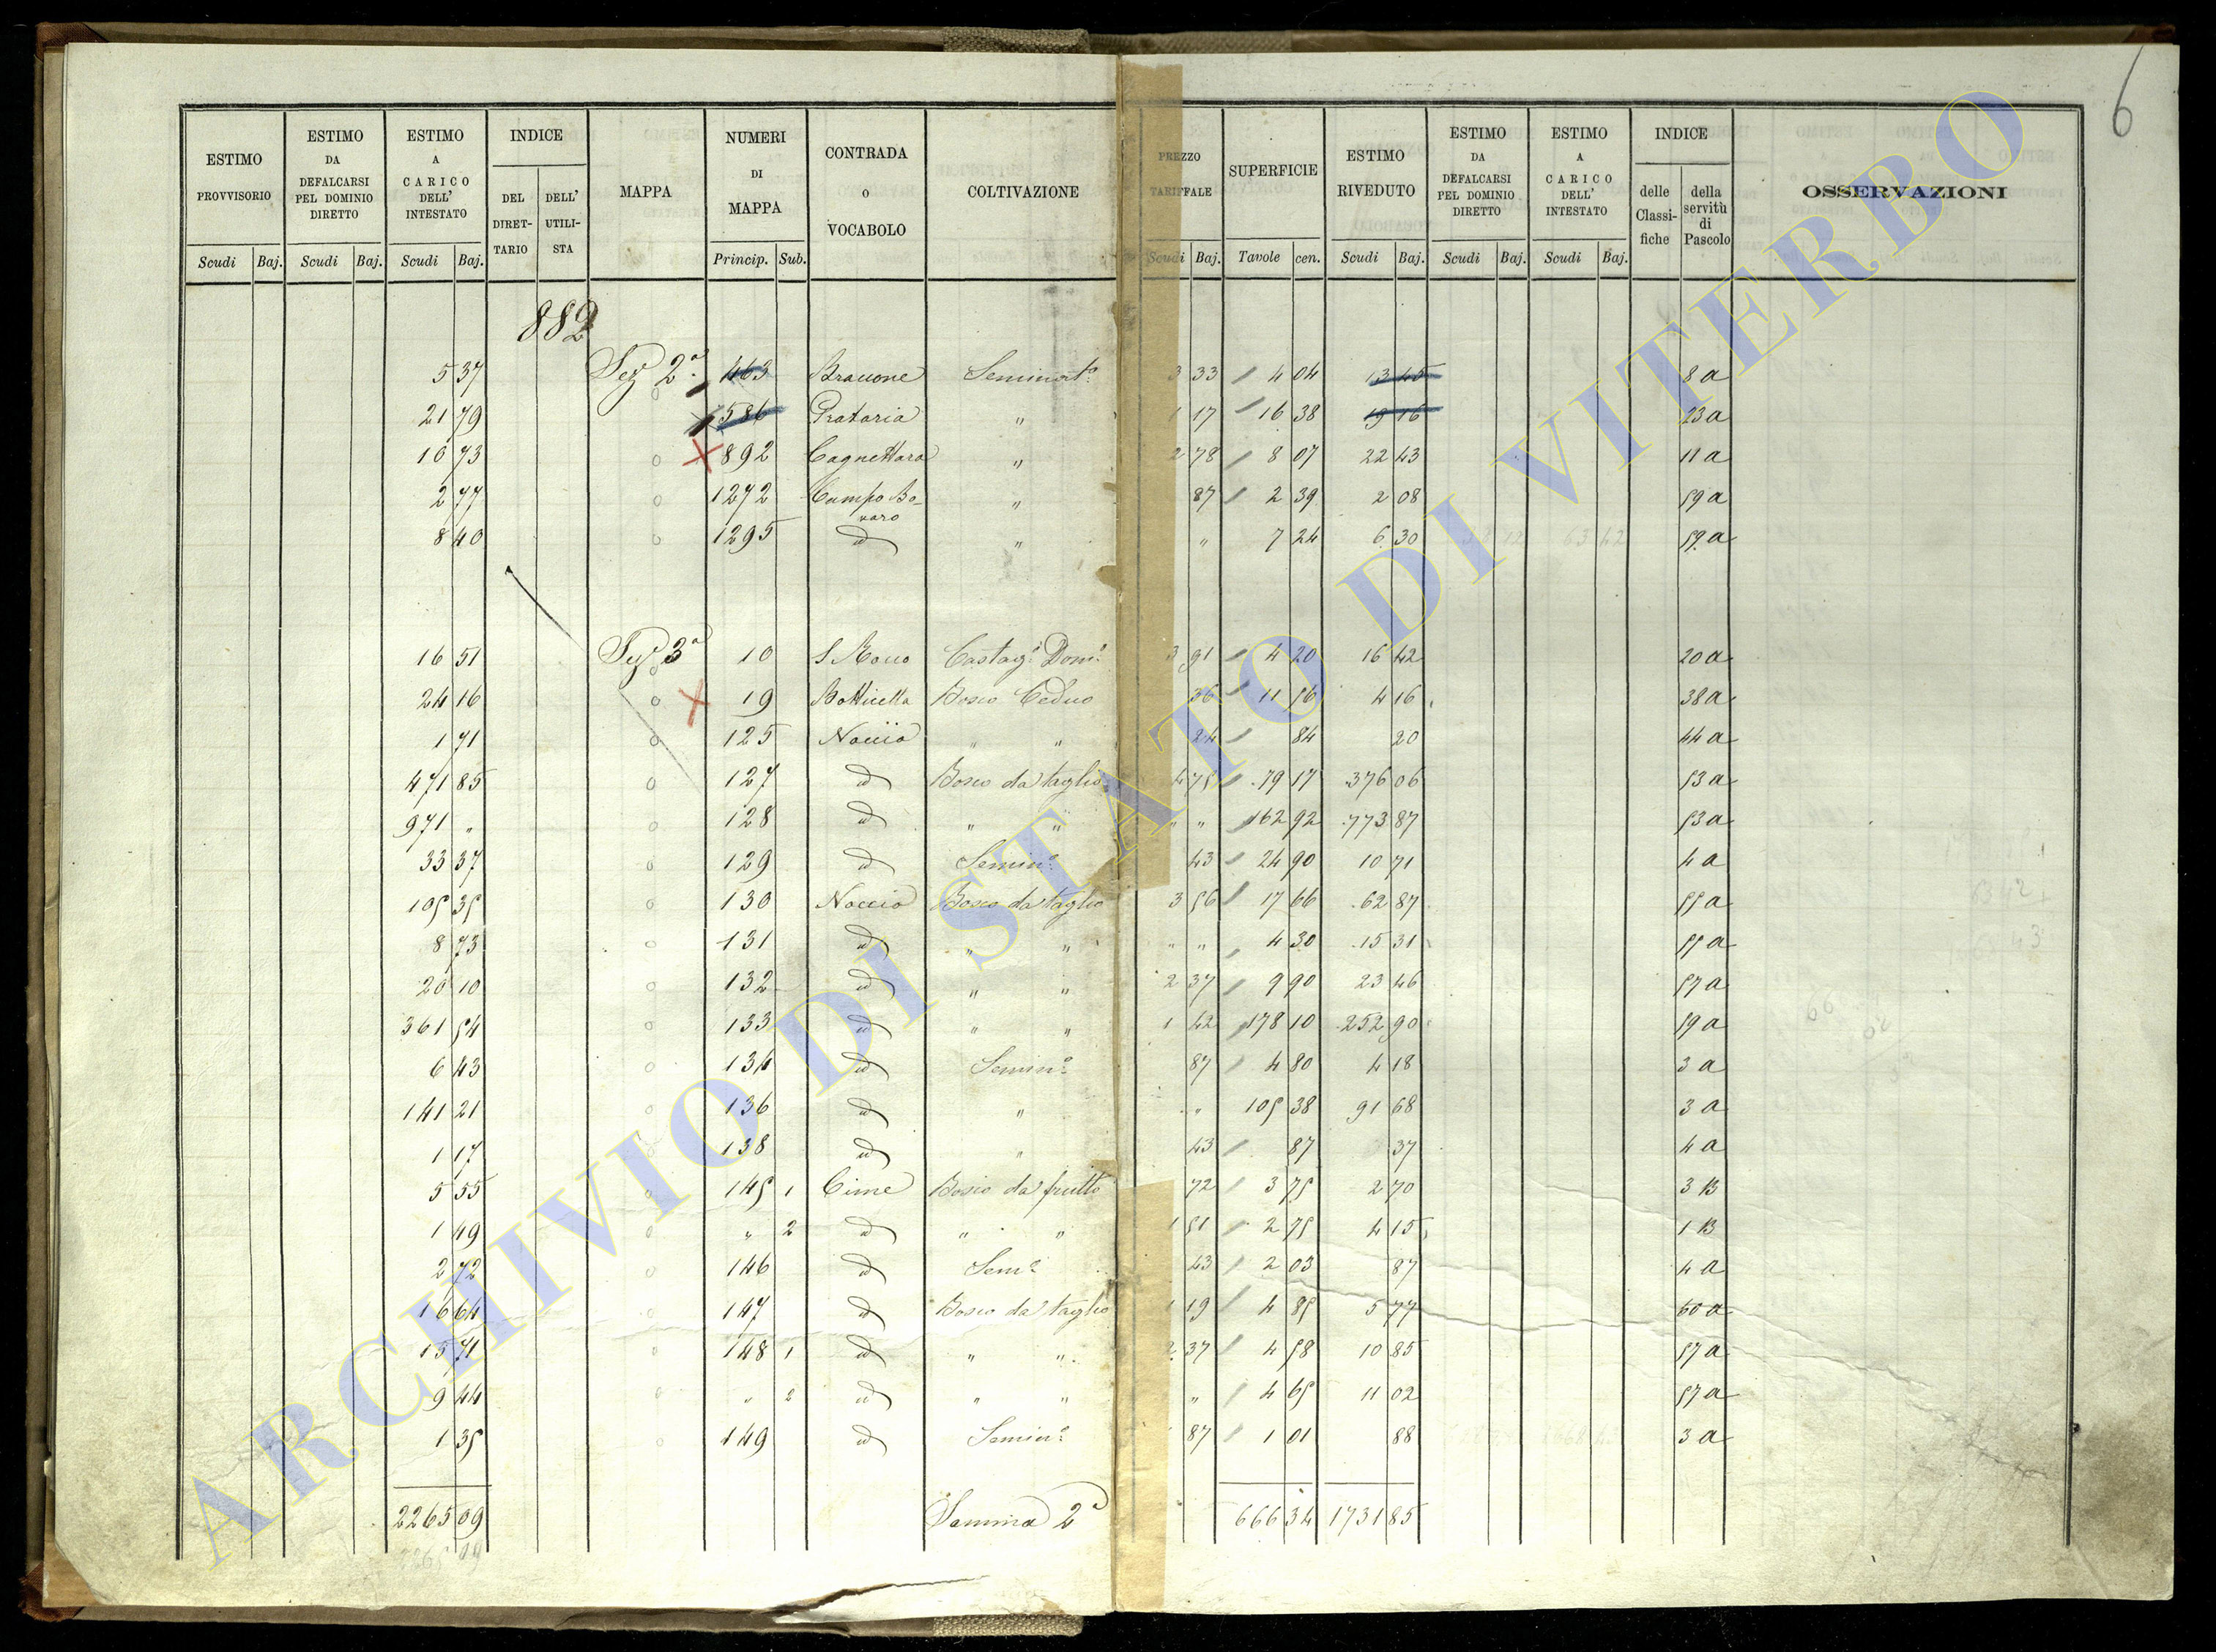 6
ESTIMO PROVVISORIO
ESTIMO DA DEFALCARSI PEL DOMINIO DIRETTO
ESTIMO A CARICO DELL' INTESTATO
INDICE
DEL DIRET-TARIO
DELL' UTILI-STA
MAPPA
NUMERI DI MAPPA
CONTRADA O VOCABOLO
COLTIVAZIONE
PREZZO TARIFFALE
SUPERFICIE
ESTIMO RIVEDUTO
ESTIMO DA DEFALCARSI PEL DOMINIO DIRETTO
ESTIMO A CARICO DELL' INTESTATO
INDICE
delle Classi-fiche
della servitù di Pascolo
OSSERVAZIONI
Scudi Baj. Scudi Baj. Scudi Baj. Princip. Sub. Scudi Baj. Tavole cen. Scudi Baj. Scudi Baj. Scudi Baj.
882
5 37 Sez 2ª 463 Seminato 3 33 4 04 13 45 8 a
21 79 586 Prataria " 1 17 16 38 19 16 23 a
10 73 892 Cagnettara " 2 78 8 07 22 43 11 a
2 77 1272 Campo Bo-varo " 87 2 39 2 08 59 a
8 40 1295 id " " 7 24 6 30 59 a
16 51 Sez 3ª 10 S Rocco Castagº Domº 3 91 4 20 16 42 20 a
24 16 19 Botticella Bosco Ceduo 36 11 56 4 16 38 a
1 71 125 Noccio " " 24 84 20 44 a
471 85 127 id Bosco da taglio 4 75 79 17 376 06 53 a
971 " 128 id " " " " 162 92 773 87 53 a
33 37 129 id Seminº 43 24 90 10 71 4 a
105 35 130 Noccio Bosco da taglio 3 56 17 66 62 87 55 a
8 73 131 id " " " " 4 30 15 31 55 a
20 10 132 id " " 2 37 9 90 23 46 57 a
361 54 133 id " " 1 42 178 10 252 90 59 a
6 43 134 id Seminº 87 4 80 4 18 3 a
141 21 136 id " " 105 38 91 68 3 a
1 17 138 id " 43 87 37 4 a
5 55 145 1 Cime Bosco da frutto 72 3 75 2 70 3 B
1 49 " 2 id " " 1 51 2 75 4 15 1 B
2 72 146 id Semº 43 2 03 87 4 a
16 64 147 id Bosco da taglio 1 19 4 85 5 77 60 a
15 71 148 1 id " " 2 37 4 58 10 85 57 a
9 44 " 2 id " " " 4 65 11 02 57 a
1 35 149 id Seminº 87 1 01 88 3 a
2265 09 Somma 2ª 666 34 1731 85
2265 09
ARCHIVIO DI STATO DI VITERBO